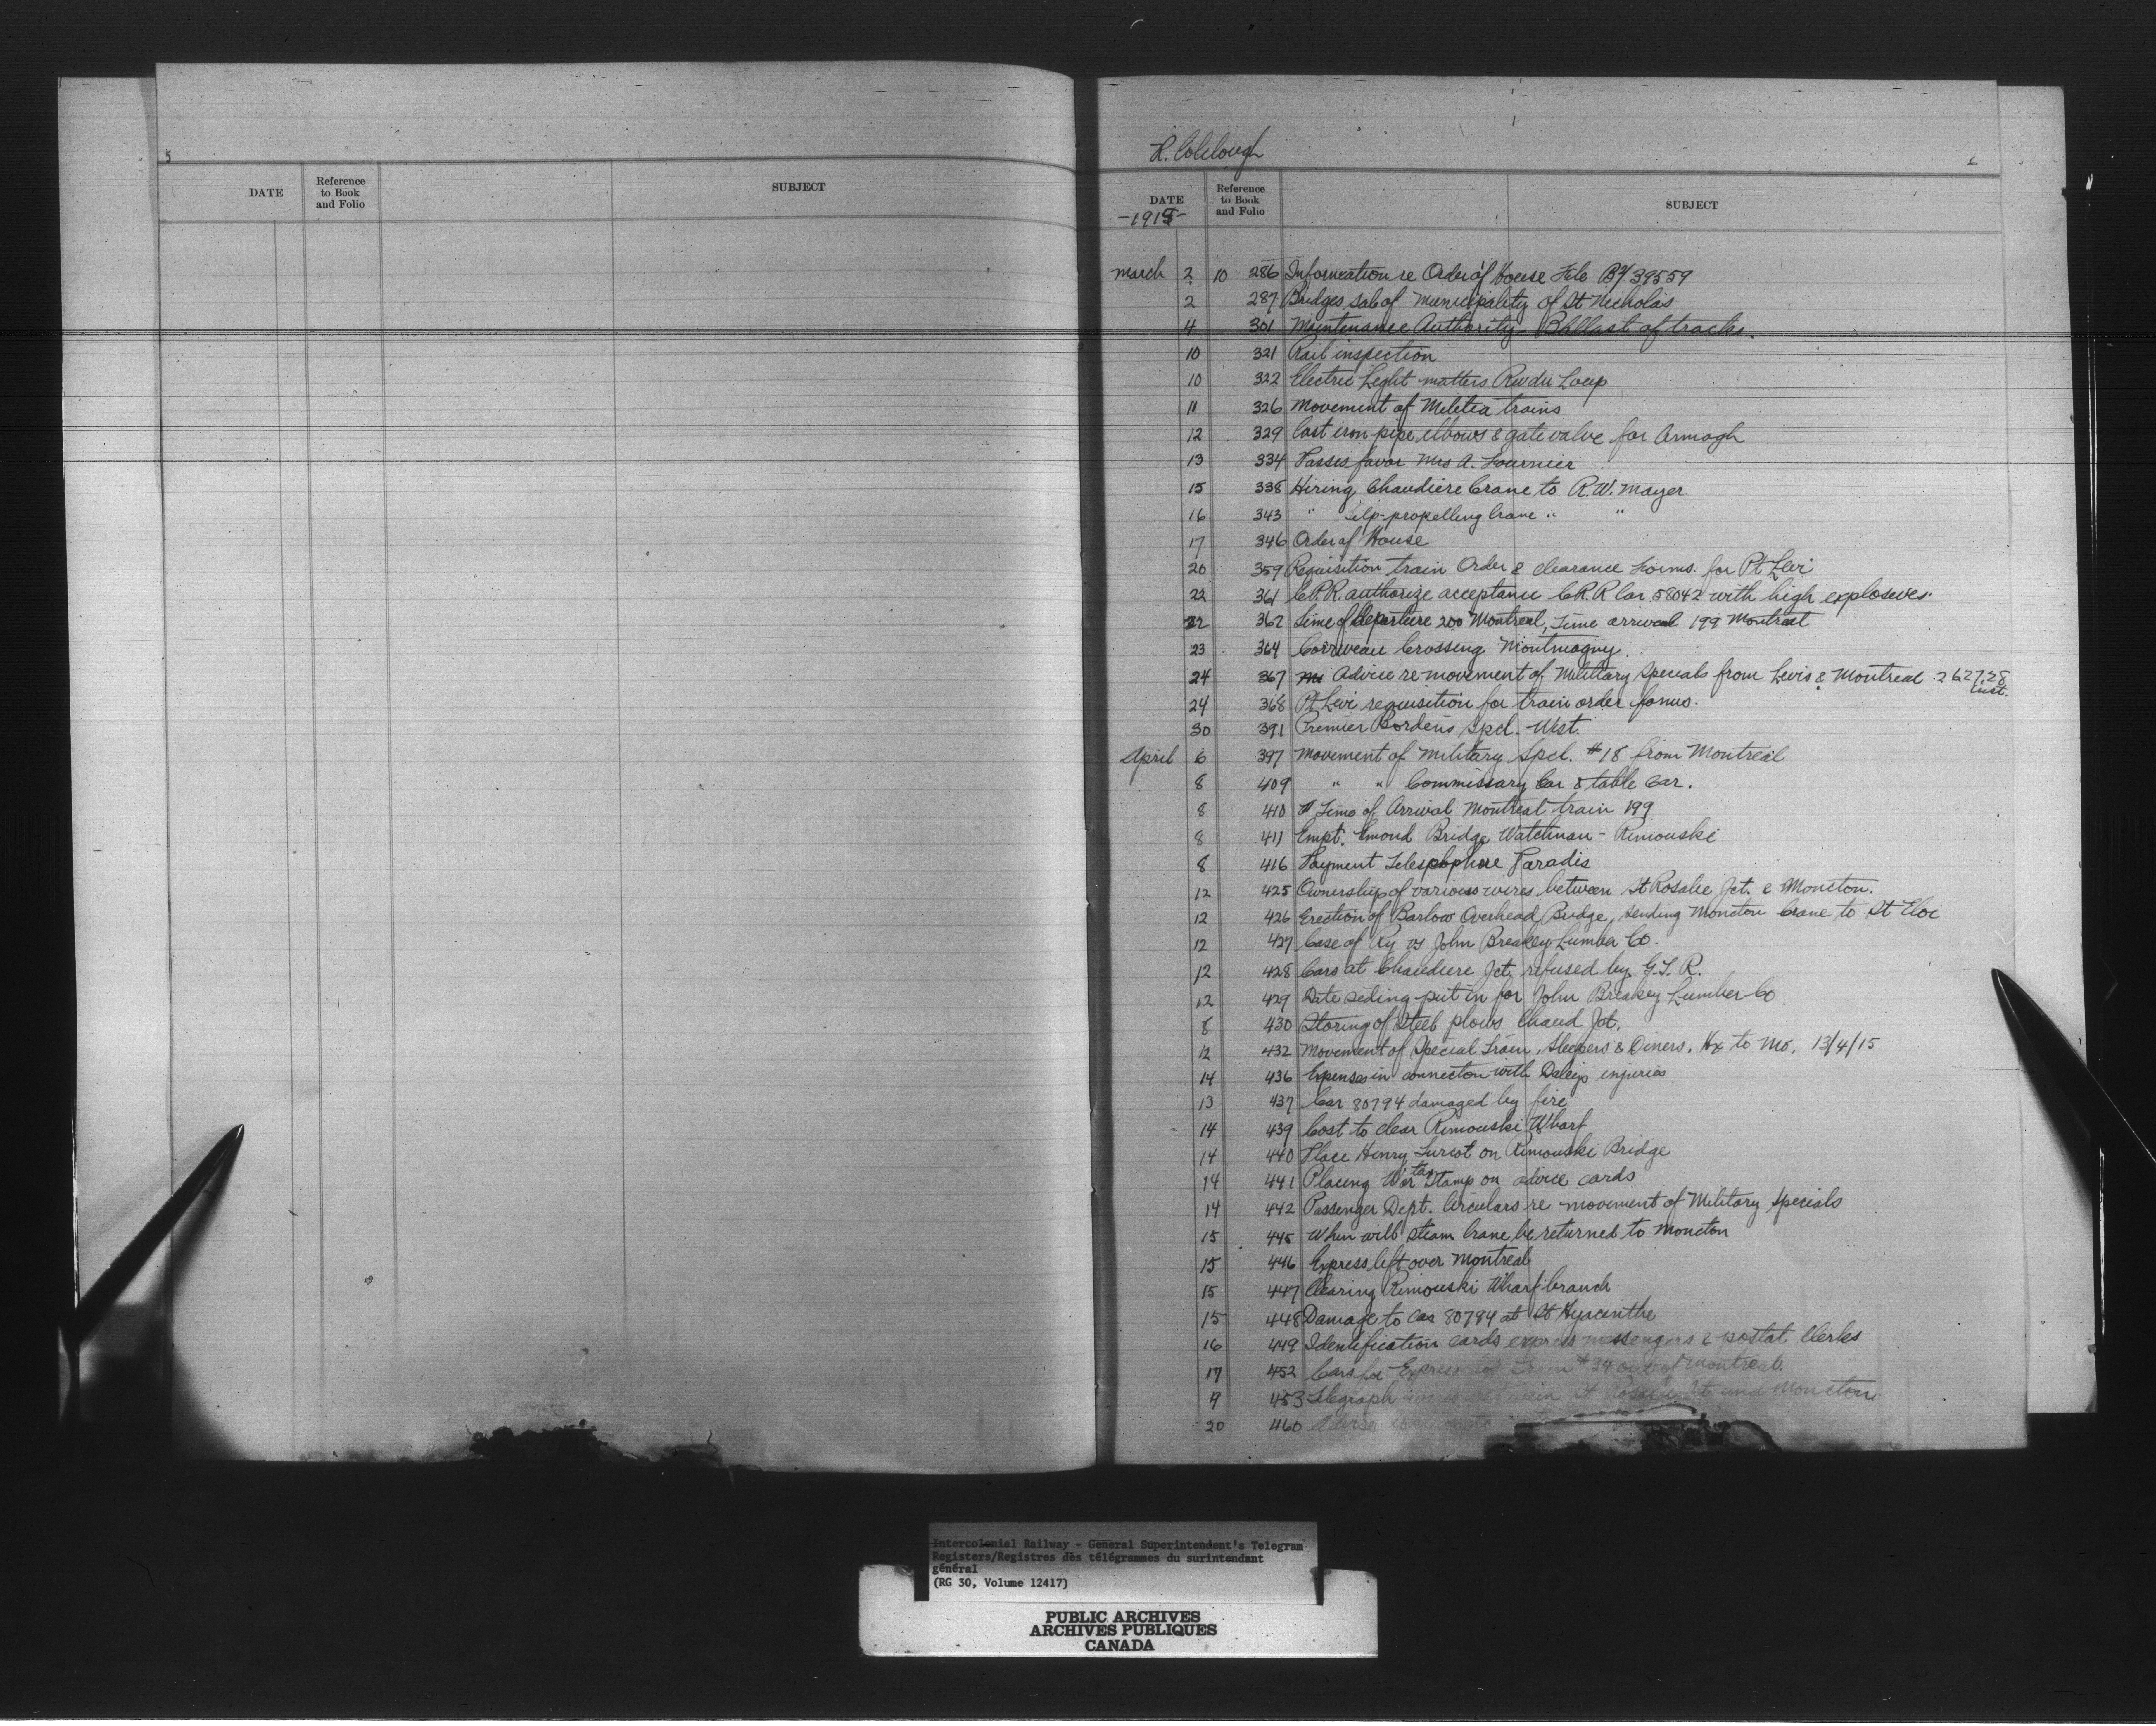 5
DATE
Reference
to Book
and Folio
SUBJECT
H. Colclough
6
DATE
Reference
to Book
and Folio
SUBJECT
-1915-
March 2 10 286 Information re Order of House File B4/39559
2 287 Bridges sale of Municipality of St Nicholas
4 301 Maintenance Authority - Ballast of tracks.
10 321 Rail inspection
10 322 Electric Light matters Riv du Loup
11 326 Movement of Militia trains
12 329 Cast iron pipe, elbows & gate valve for Armagh
13 334 Passes favor Mrs A. Fournier
15 338 Hiring Chaudiere Crane to R.W. Mayer
16 343 " self-propelling Crane " "
17 346 Order of House
20 359 Requisition train Order & clearance Forms. for Pt Levi
22 361 C.P.R. authorize acceptance C.R.R Car 58042 with high explosives.
22 362 Time of departure 200 Montreal, Time arrival 199 Montreal
23 364 Corriveau Crossing Montmagny.
24 367 Advice re movement of Military Specials from Levis & Montreal 26.27.28
inst.
24 368 Pt Levi requisition for train order forms.
30 391 Premier Borden's Spcl. West.
April 6 397 Movement of Military Spcl. #18 from Montreal
8 409 " " Commissary Car & table Car.
8 410 Time of Arrival Montreal train 199
8 411 Empt. Emond Bridge Watchman - Rimouski
8 416 Payment Telesphore Paradis
12 425 Ownership of various wires between St Rosalie Jct. & Moncton.
12 426 Erection of Barlow Overhead Bridge, sending Moncton Crane to St Eloi
12 427 Case of Ry vs John Breakey Lumber Co.
12 428 Cars at Chaudiere Jct. refused by G.T.R.
12 429 Date siding put in for John Breakey Lumber Co.
8 430 Storing of Steel plows Chaud Jct.
12 432 Movement of Special Train, Sleepers & Diners. Hx to Mo. 13/4/15
14 436 Expenses in connecton with injuries
13 437 Car 80794 damaged by fire
14 439 Cost to clear Rimouski Wharf
14 440 Place Henry Turcot on Rimouski Bridge
14 441 Placing War tax Stamp on advice cards
14 442 Passenger Dept. Circulars re movement of Military Specials
15 445 When will steam Crane be returned to Moncton
15 446 Express left over Montreal
15 447 Clearing Rimouski Wharf branch
15 448 Damage to Car 80794 at St Hyacinthe
16 449 Identification cards express messengers & postal Clerks
17 452 Cars for Express Train #34 out of Montreal.
9 453 Telegraph wires between St Rosalie Jct and Moncton
20 460 Advise
Intercolonial Railway - General Superintendent's Telegram
Registers/Registres des télégrammes du surintendant
général
(RG 30, Volume 12417)
PUBLIC ARCHIVES
ARCHIVES PUBLIQUES
CANADA